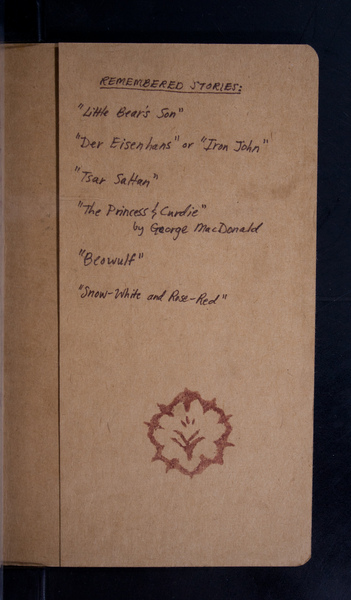 REMEMBERED STORIES:
"Little Bear's Son"
"Der Eisenhans" or "Iron John"
"Tsar Saltan"
"The Princess & Curdie"
by George MacDonald
"Beowulf"
"Snow-White and Rose-Red"